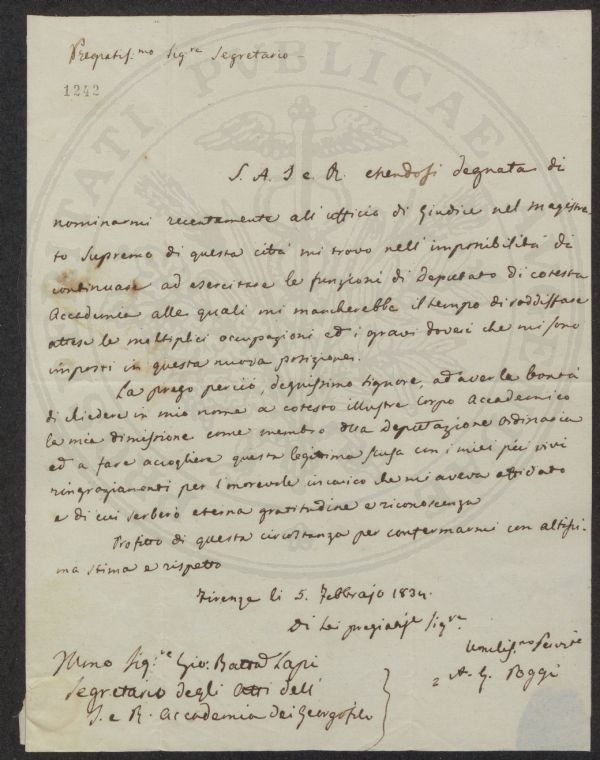 Pregiatis.mo Sig.re Segretario
1242
S. A. I e R. essendosi degnata di
nominarmi recentemente all'uffizio di Giudice nel Magistra-
to Supremo di questa città mi trovo nell'impossibilità di
continuare ad esercitare le funzioni di Deputato di cotesta
Accademia alle quali mi mancherebbe il tempo di soddisfare
attese le moltiplici occupazioni ed i gravi doveri che mi sono
imposti in questa nuova posizione.
La prego perciò, degnissimo Signore, ad aver la bontà
di chiedere in mio nome a cotesto illustre Corpo Accademico
la mia dimissione come membro della Deputazione Ordinaria
ed a fare accogliere questa legittima scusa con i miei più vivi
ringraziamenti per l'onorevole incarico che mi aveva affidato
e di cui serberò eterna gratitudine e riconoscenza
Profitto di questa circostanza per confermarmi con altissi-
ma stima e rispetto
Firenze li 5. Febbrajo 1834.
Di Lei pregiatis.e Sig.re
Umilis.mo Servite
A. G. Poggi
Illmo Sig.re Gio. Batta Lapi
Segretario degli Atti dell'
I. e R. Accademia dei Georgofili
PUBLICAE